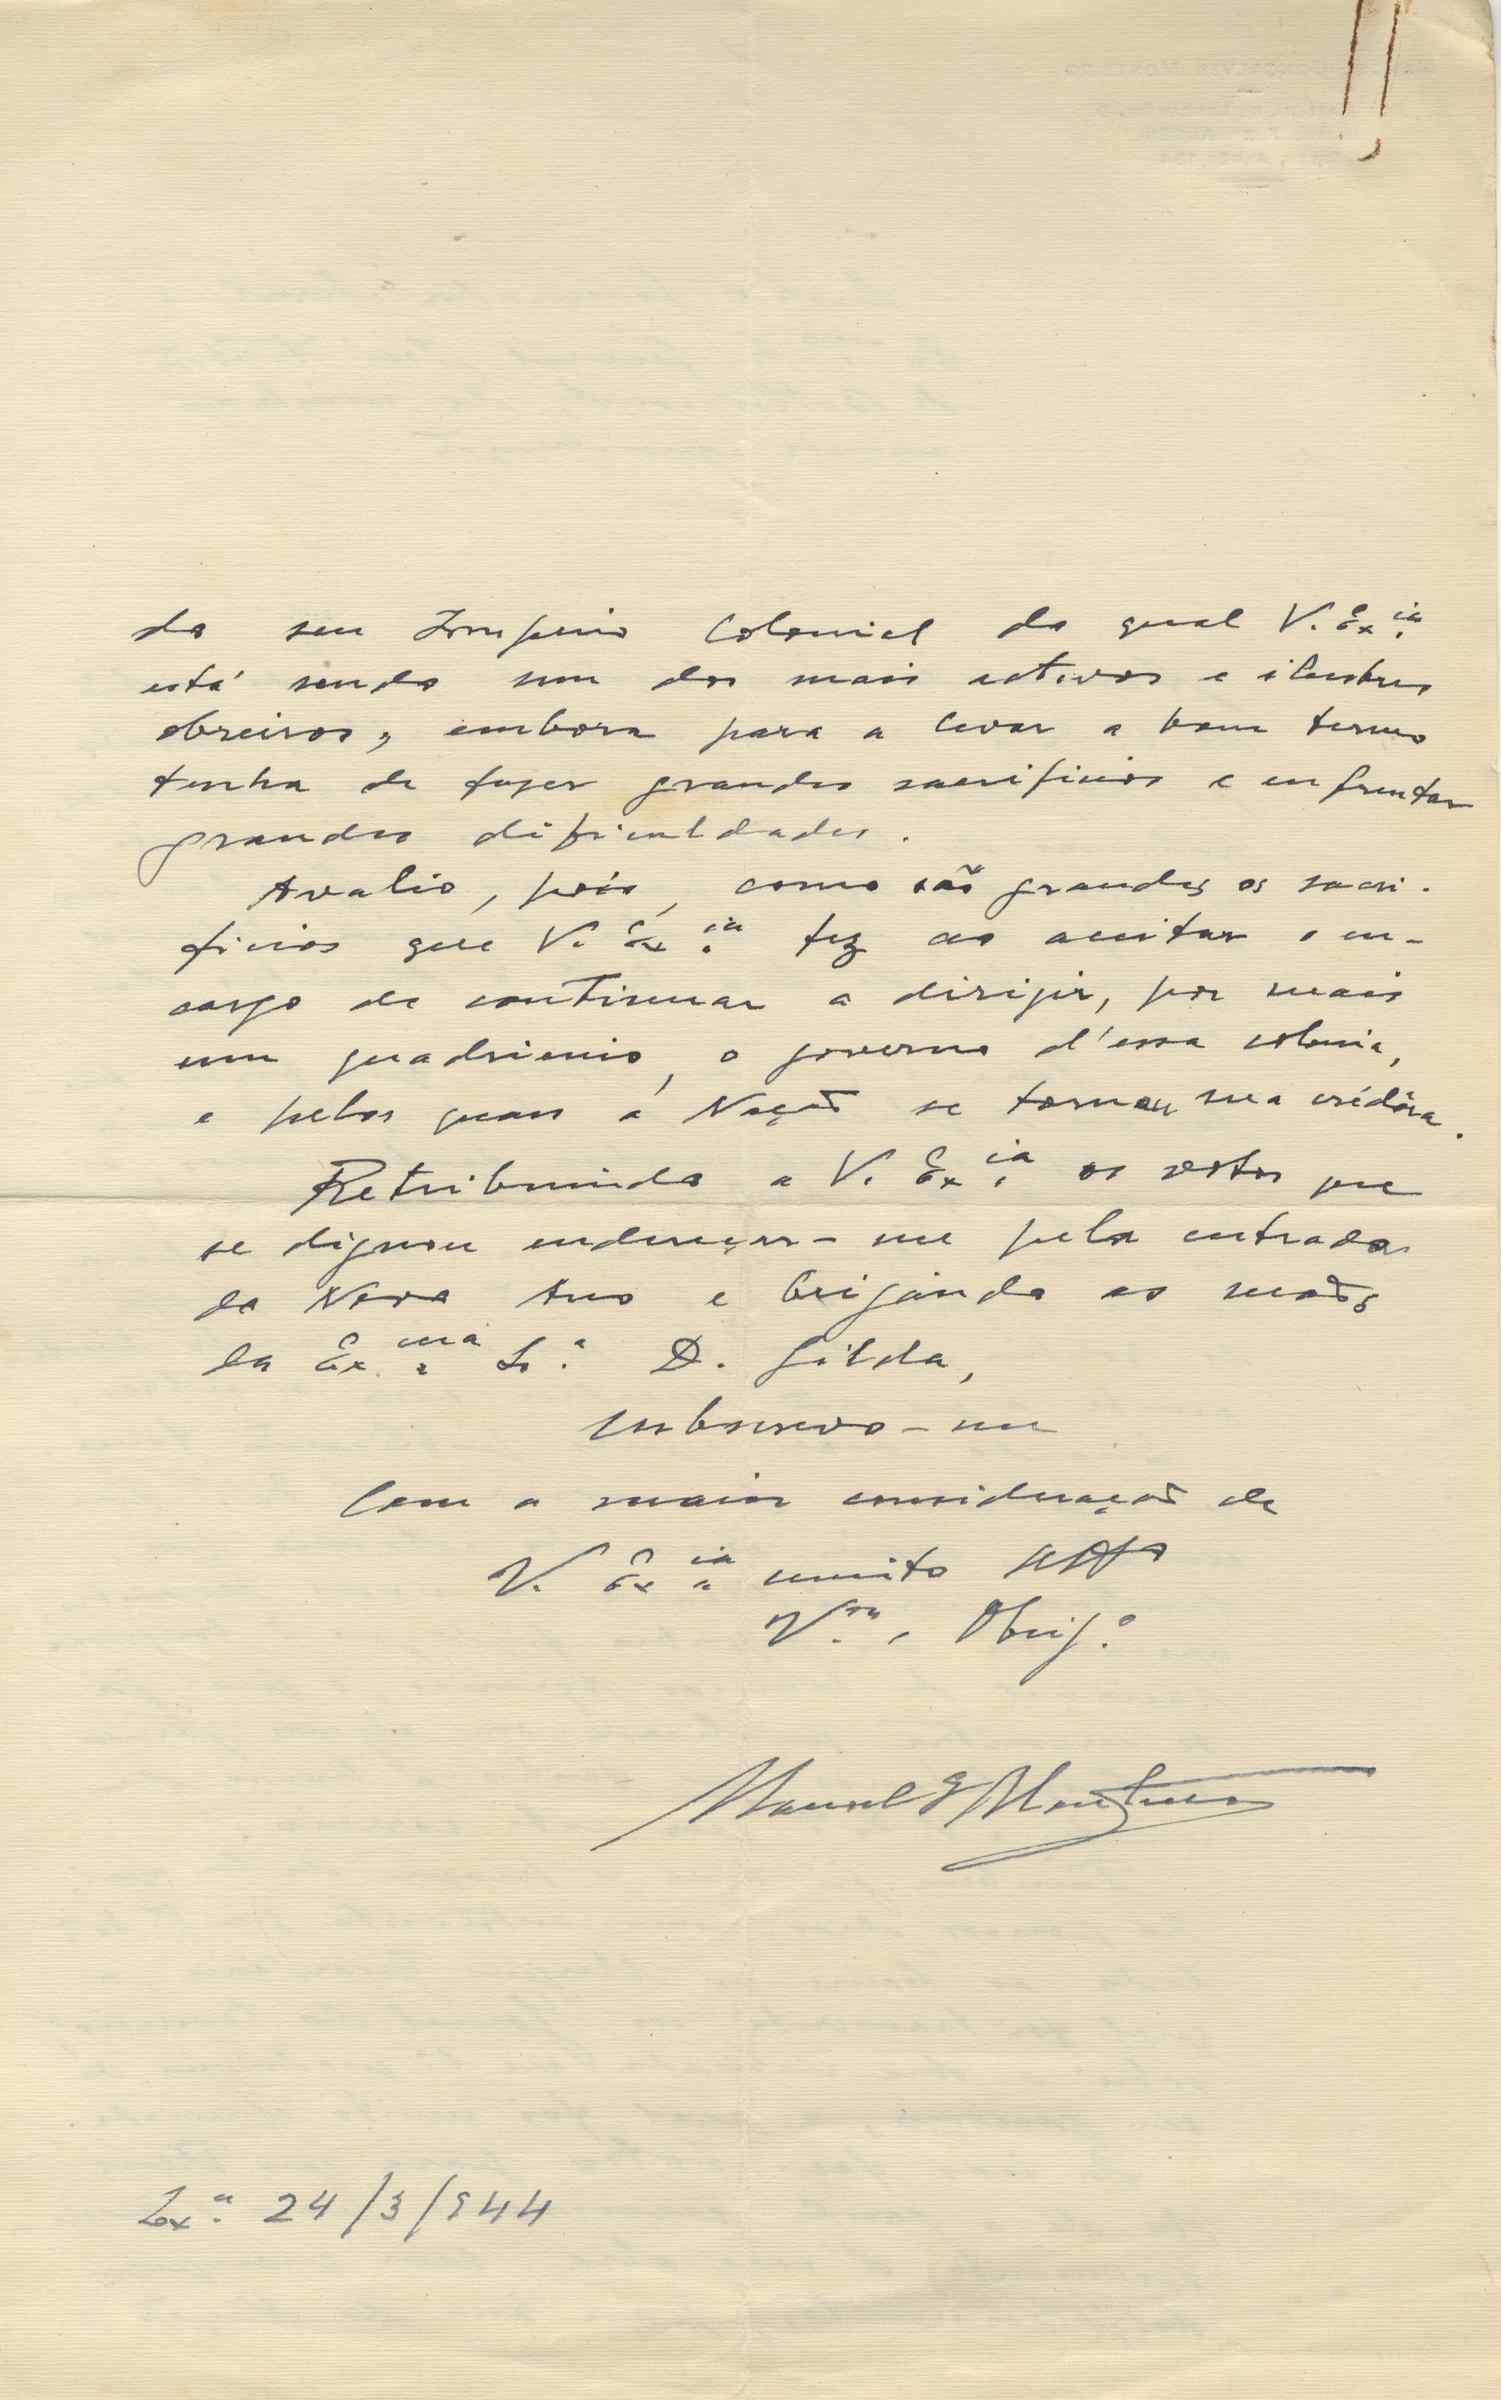 do seu Imperio Colonial do qual V. Ex.ia
está sendo um dos mais activos e ilustres
obreiros, embora para a levar a bom termo
tenha de fazer grandes sacrificios e enfrentar
grandes dificuldades.
Avalio, pois, como são grandes os sacri-
ficios que V. Ex.ia fez ao aceitar o en-
cargo de continuar a dirigir, por mais
um quadrienio, o governo d'essa colonia,
e pelos quaes a Nação se tornou sua crédôra.
Retribuindo a V. Ex.ia os votos que
se dignou endereçar-me pela entrada
do Novo Ano e beijando as mãos
da Ex.ma Sr.a D. Gilda,
subscrevo-me
Com a maior consideração de
V. Ex.ia muito
V.or, Obrig.o
Manoel G Monteiro
Lx.a 24/3/944